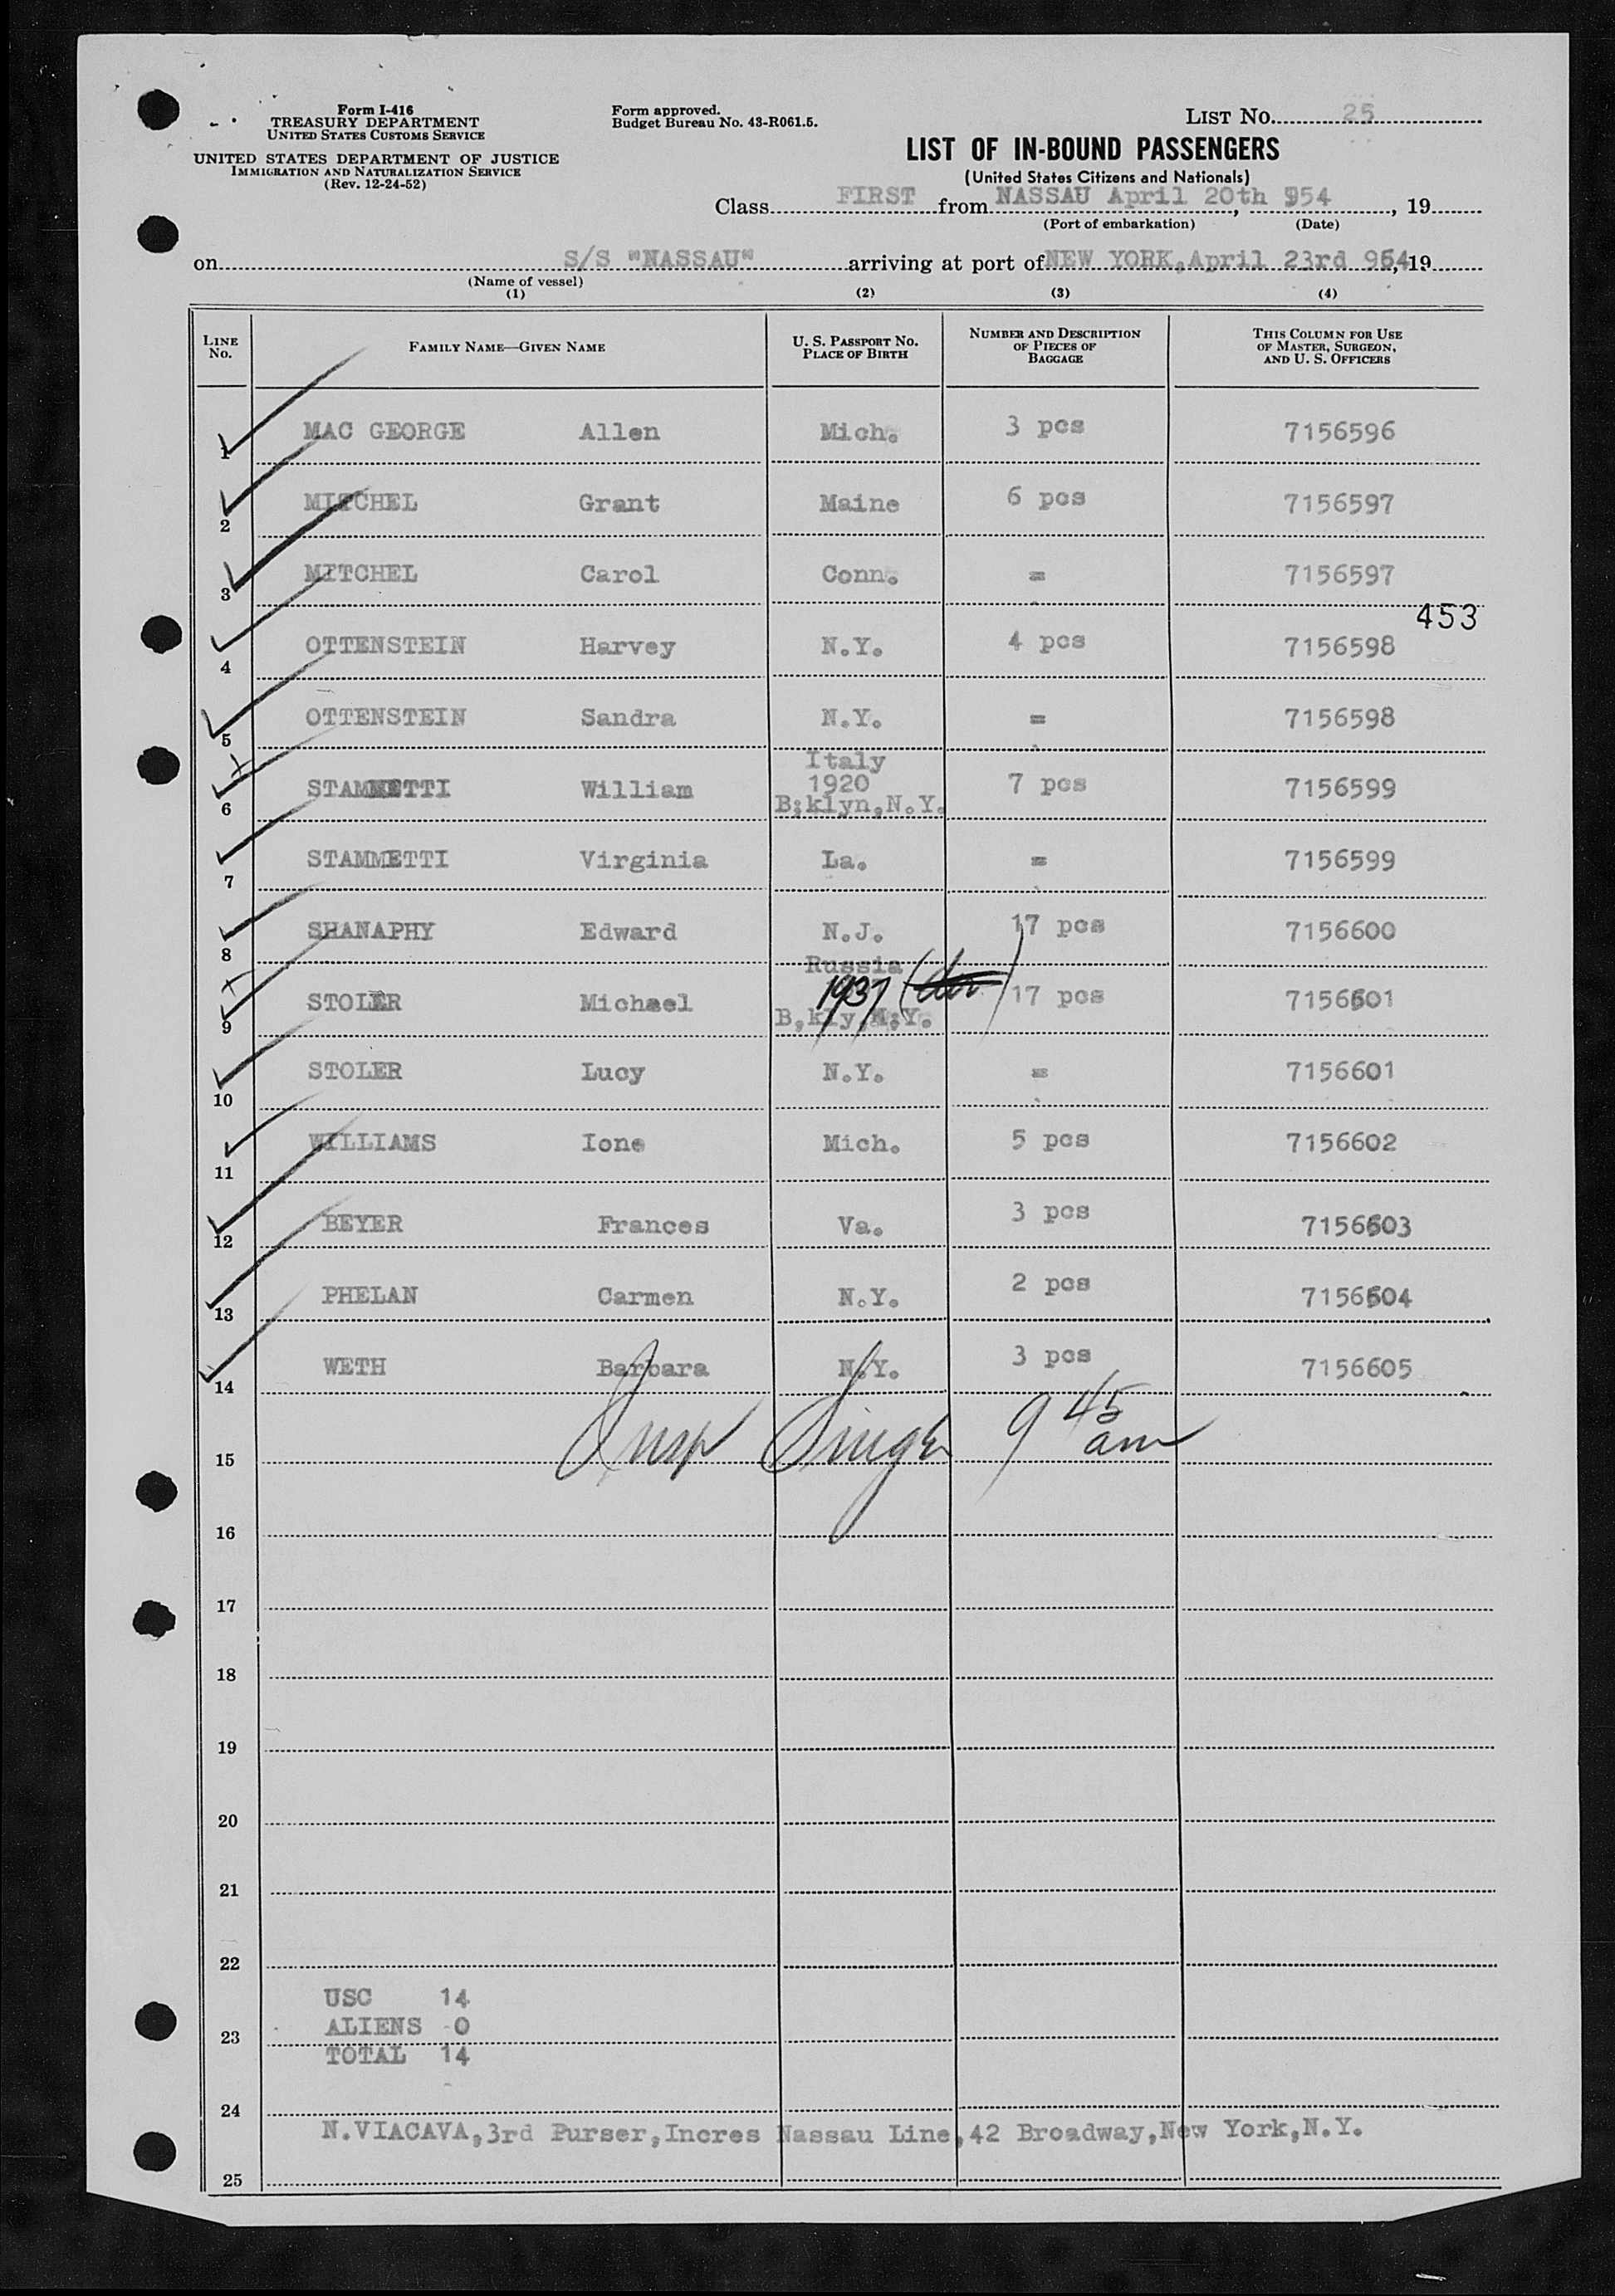 Form I-416
TREASURY DEPARTMENT
UNITED STATES CUSTOMS SERVICE
UNITED STATES DEPARTMENT OF JUSTICE
IMMIGRATION AND NATURALIZATION SERVICE
(Rev. 12-24-52)
Form approved.
Budget Bureau No. 43-R061.5.
LIST NO. 25
LIST OF IN-BOUND PASSENGERS
(United States Citizens and Nationals)
Class FIRST from NASSAU April 20th 954, 19
(Port of embarkation) (Date)
on S/S "NASSAU" arriving at port of NEW YORK, April 23rd 954, 19
(Name of vessel)
(1) (2) (3) (4)
LINE No. FAMILY NAME—GIVEN NAME U. S. PASSPORT NO. PLACE OF BIRTH NUMBER AND DESCRIPTION OF PIECES OF BAGGAGE THIS COLUMN FOR USE OF MASTER, SURGEON, AND U. S. OFFICERS
1 MAC GEORGE Allen Mich. 3 pcs 7156596
2 MITCHEL Grant Maine 6 pcs 7156597
3 MITCHEL Carol Conn. = 7156597
453
4 OTTENSTEIN Harvey N.Y. 4 pcs 7156598
5 OTTENSTEIN Sandra N.Y. = 7156598
6 STAMMETTI William Italy 1920 B;klyn,N.Y. 7 pcs 7156599
7 STAMMETTI Virginia La. = 7156599
8 SHANAPHY Edward N.J. 17 pcs 7156600
9 STOLER Michael Russia 1937 B,kly,N;Y. 17 pcs 7156601
10 STOLER Lucy N.Y. = 7156601
11 WILLIAMS Ione Mich. 5 pcs 7156602
12 BEYER Frances Va. 3 pcs 7156603
13 PHELAN Carmen N.Y. 2 pcs 7156604
14 WETH Barbara N.Y. 3 pcs 7156605
Insp Singer 9 45 am
15
16
17
18
19
20
21
22
USC 14
23 ALIENS 0
TOTAL 14
24
N.VIACAVA,3rd Purser,Incres Nassau Line,42 Broadway,New York,N.Y.
25